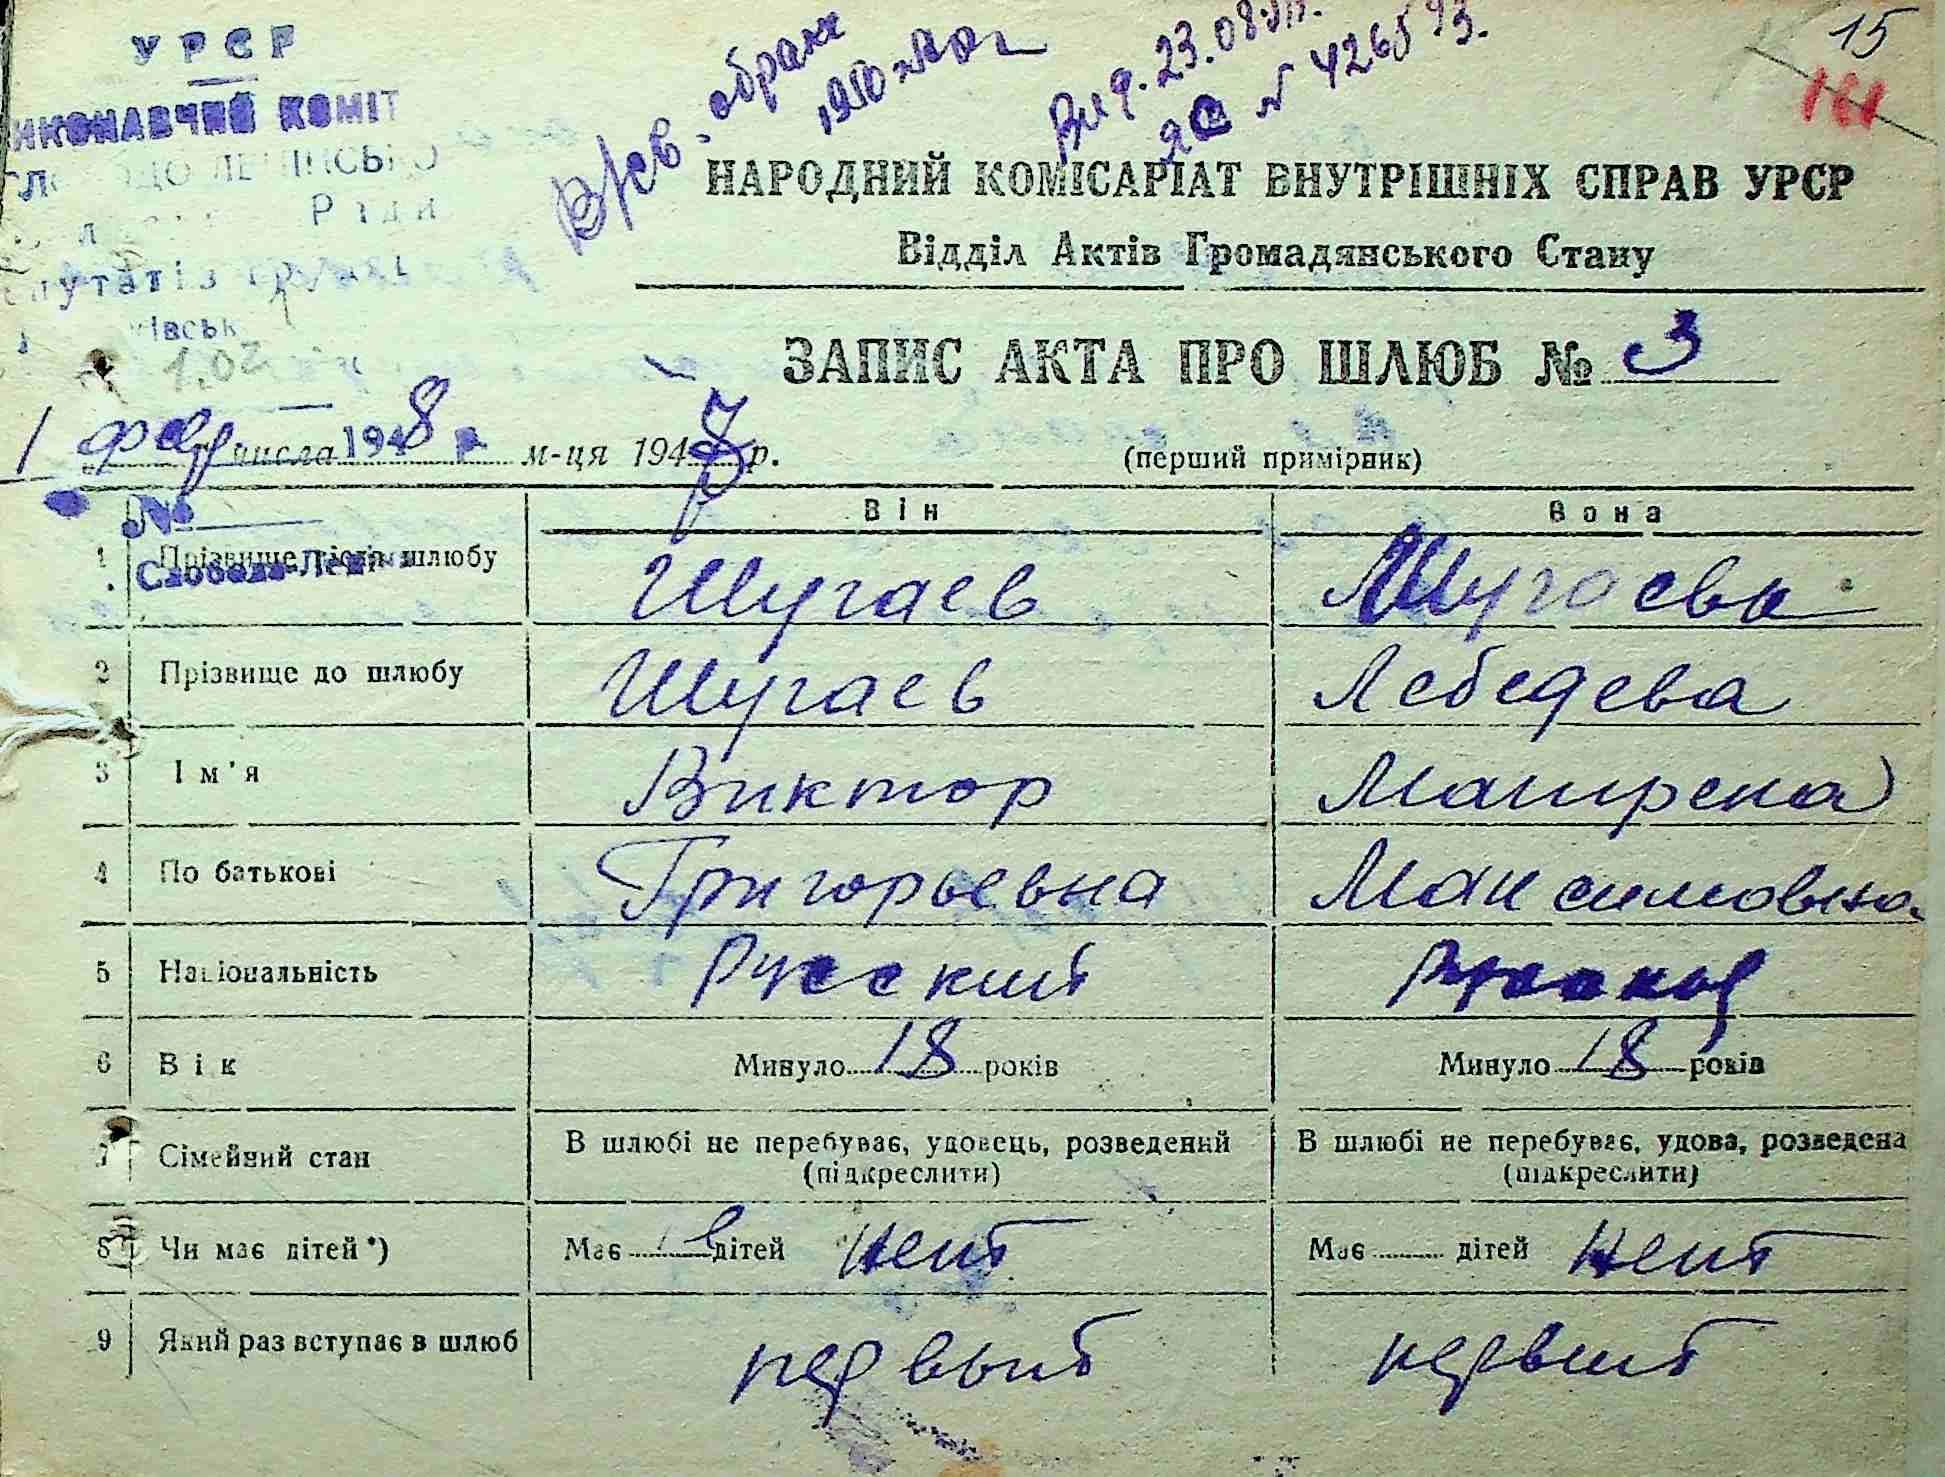 УРСР
ИКОНАВЧИЙ КОМІТ
Ради
1.02
15
161
о браке
Вид. 23.08
№ 426593.
НАРОДНИЙ КОМІСАРІАТ ВНУТРІШНІХ СПРАВ УРСР
Відділ Актів Громадянського Стану
ЗАПИС АКТА ПРО ШЛЮБ № 3
1 февр числа 1948 р. м-ця 1948 р.
(перший примірник)
№
Слобода-Лені
Він Вона
1 Прізвище після шлюбу Шугаев Шугаева
2 Прізвище до шлюбу Шугаев Лебедева
3 Ім'я Виктор
4 По батькові Григорьевна Максимовна
5 Національність Русский
6 Вік Минуло 18 років Минуло 18 років
7 Сімейний стан В шлюбі не перебуває, удовець, розведений (підкреслити) В шлюбі не перебуває, удова, розведена (підкреслити)
8 Чи має дітей *) Має дітей нет Має дітей нет
9 Який раз вступає в шлюб первый первый